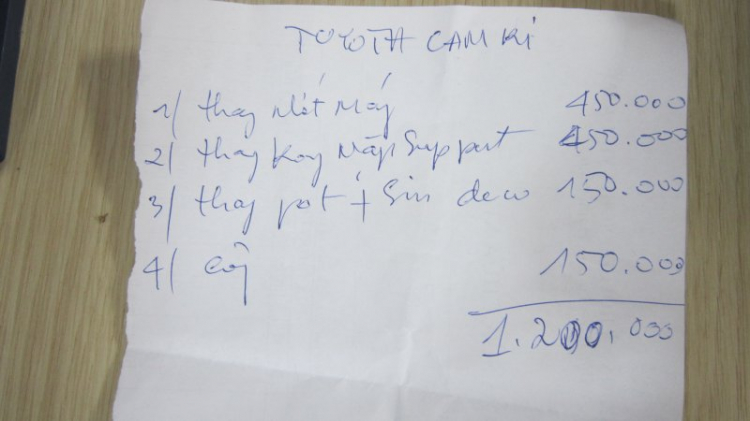 TOYOTA CAM RI
1/ thay nhớt máy 450.000
2/ thay Ron nắp Support 450.000
3/ thay pót + Sin deco 150.000
4/ 150.000
1.200.000